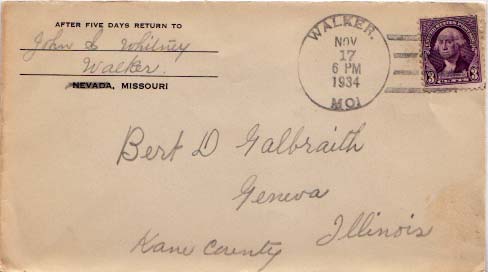 AFTER FIVE DAYS RETURN TO
John S Whitney
Walker.
NEVADA, MISSOURI
WALKER.
NOV
17
6 PM
1934
MO.
3 CENTS 3
Bert D Galbraith
Geneva
Illinois
Kane County